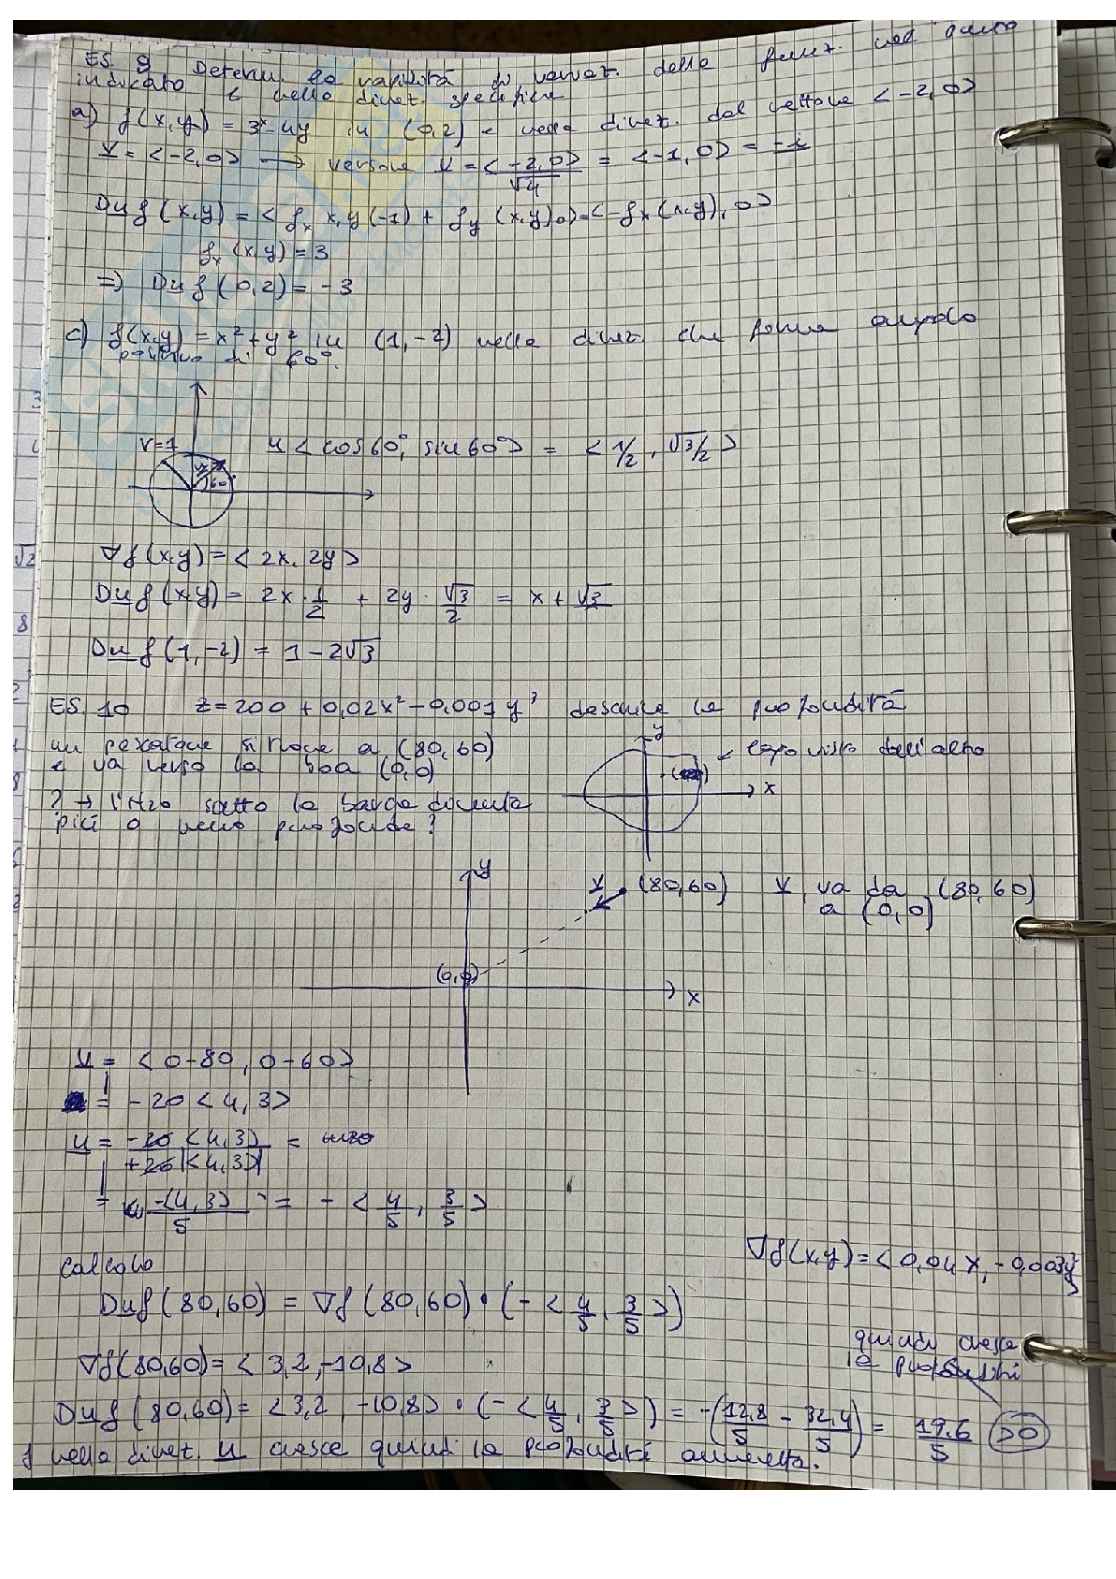 ES. 9 Determ. la rapidità di variaz. della funz. nel punto
indicato e nella direz. specifica
a) f(x,y) = 3x-4y in (0,2) e nella direz. dal vettore <-2,0>
v = <-2,0> → versore u = <-2,0>/√4 = <-1,0> = -i
Du f(x,y) = <fx x,y(-1) + fy (x,y)0> = <-fx(x,y), 0>
fx (x,y) = 3
=> Du f(0,2) = -3
c) f(x,y) = x² + y² in (1,-2) nella direz. che forma angolo
positivo di 60°.
r=1
60
u <cos60°, sin60°> = <1/2, √3/2>
∇f(x,y) = <2x, 2y>
Duf(x,y) = 2x · 1/2 + 2y · √3/2 = x + √3
Duf(1,-2) = 1 - 2√3
ES. 10 z = 200 + 0,02x² - 0,001y³ descrive la profondità
un pescatore si trova a (80,60)
e va verso la boa (0,0)
? → l'H2O sotto la barca diventa
più o meno profonda?
y
x
lago visto dall'alto
y
x
(0,0)
v
(80,60)
v va da (80,60)
a (0,0)
v = <0-80, 0-60>
= -20<4,3>
u = -20<4,3>/+20|<4,3>| =
= -<4,3>/5 = -<4/5, 3/5>
calcolo
∇f(x,y) = <0,04x, -0,003y²>
Duf(80,60) = ∇f(80,60) · (-<4/5, 3/5>)
quindi cresce
la profondità
∇f(80,60) = <3,2, -10,8>
Duf(80,60) = <3,2 -10,8> · (-<4/5, 3/5>) = -(12,8/5 - 32,4/5) = 19,6/5 >0
f nella direz. u cresce quindi la profondità aumenta.